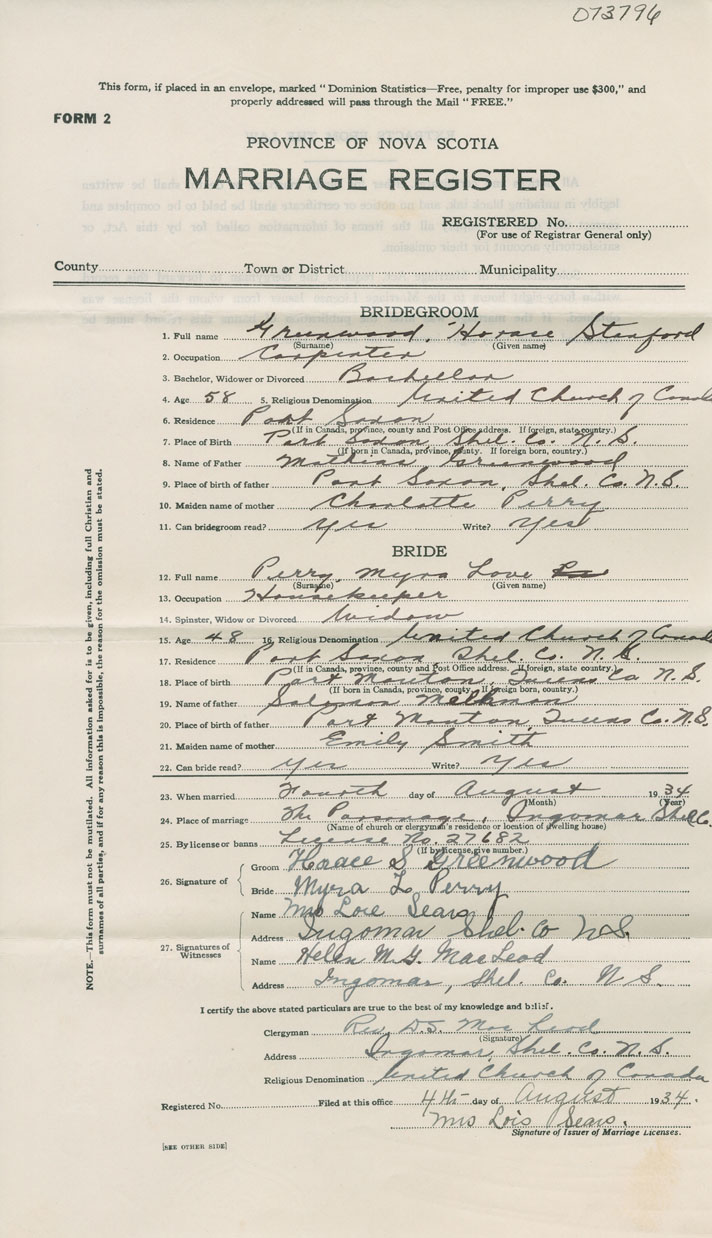 073796
This form, if placed in an envelope, marked "Dominion Statistics—Free, penalty for improper use $300," and
properly addressed will pass through the Mail "FREE."
FORM 2
PROVINCE OF NOVA SCOTIA
MARRIAGE REGISTER
REGISTERED No.
(For use of Registrar General only)
County Town or District Municipality
BRIDEGROOM
1. Full name Greenwood, Horace Stanford
(Surname) (Given name)
2. Occupation Carpenter
3. Bachelor, Widower or Divorced Bachellor
4. Age 58 5. Religious Denomination United Church of Canad
6. Residence Port Saxon
(If in Canada, province, county and Post Office address. If foreign, state country.)
7. Place of Birth Port Saxon, Shel. Co. N. S.
(If born in Canada, province, county. If foreign born, country.)
8. Name of Father Mathias Greenwood
9. Place of birth of father Port Saxon, Shel. Co. N.S.
10. Maiden name of mother Charlotte Perry
11. Can bridegroom read? Yes Write? Yes
BRIDE
12. Full name Perry, Myra Love
(Surname) (Given name)
13. Occupation Housekeeper
14. Spinster, Widow or Divorced Widow
15. Age 48 16. Religious Denomination United Church of Canad
17. Residence Port Saxon Shel. Co. N. S.
(If in Canada, province, county and Post Office address. If foreign, state country.)
18. Place of birth Port Mouton, Queens Co N. S.
(If born in Canada, province, county. If foreign born, country.)
19. Name of father Soloman
20. Place of birth of father Port Mouton, Queens Co. N.S.
21. Maiden name of mother Emily Smith
22. Can bride read? Yes Write? Yes
23. When married Fourth day of August 1934
(Month) (Year)
24. Place of marriage The Parsonage, Ingomar Shel Co.
(Name of church or clergyman's residence or location of dwelling house)
25. By license or banns License No. 27682
(If by license, give number.)
26. Signature of
Groom Horace S Greenwood
Bride Myra L Perry
27. Signatures of
Witnesses
Name Mrs Lois Sears
Address Ingomar Shel. Co N.S.
Name Helen M. G. MacLeod
Address Ingomar, Shel. Co. N S.
I certify the above stated particulars are true to the best of my knowledge and belief.
Clergyman Rev. D.S. Mac Leod
(Signature)
Address Ingomar, Shel. Co. N. S.
Religious Denomination United Church of Canada
Registered No. Filed at this office 4th day of August 1934.
Mrs Lois Sears.
Signature of Issuer of Marriage Licenses.
[SEE OTHER SIDE]
NOTE.—This form must not be mutilated. All information asked for is to be given, including full Christian and
surnames of all parties, and if for any reason this is impossible, the reason for the omission must be stated.